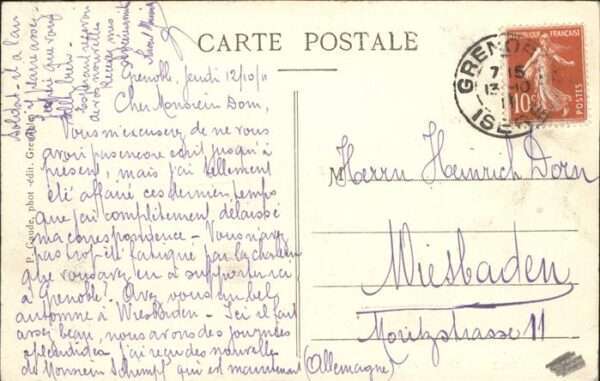 CARTE POSTALE
Grenoble, Jeudi 12/10/11
Cher Monsieur Dorn,
Vous m'excuserez de ne vous
avoir pas encore écrit jusqu'à
présent, mais j'ai tellement
été affairé ces derniers temps
que j'ai complètement délaissé
ma correspondance – Vous n'avez
pas trop été fatigué par la chaleur
que vous avez eu à supporter ici
à Grenoble? Avez vous un bel
automne à Wiesbaden – Ici il fait
assez beau, nous avons des journées
splendides. J'ai reçu des nouvelles
de Monsieur Schempf qui est maintenant
soldat
plaire assez
J'espère que vous
allez bien
de vos nouvelles
Recevez mes
P. Gaude, phot.-édit. Grenoble
REPUBLIQUE FRANÇAISE
10
POSTES
GRENOBLE
7 15
13-10
11
ISERE
M
Herrn Heinrich Dorn
Wiesbaden
Moritzstrasse 11
(Allemagne)